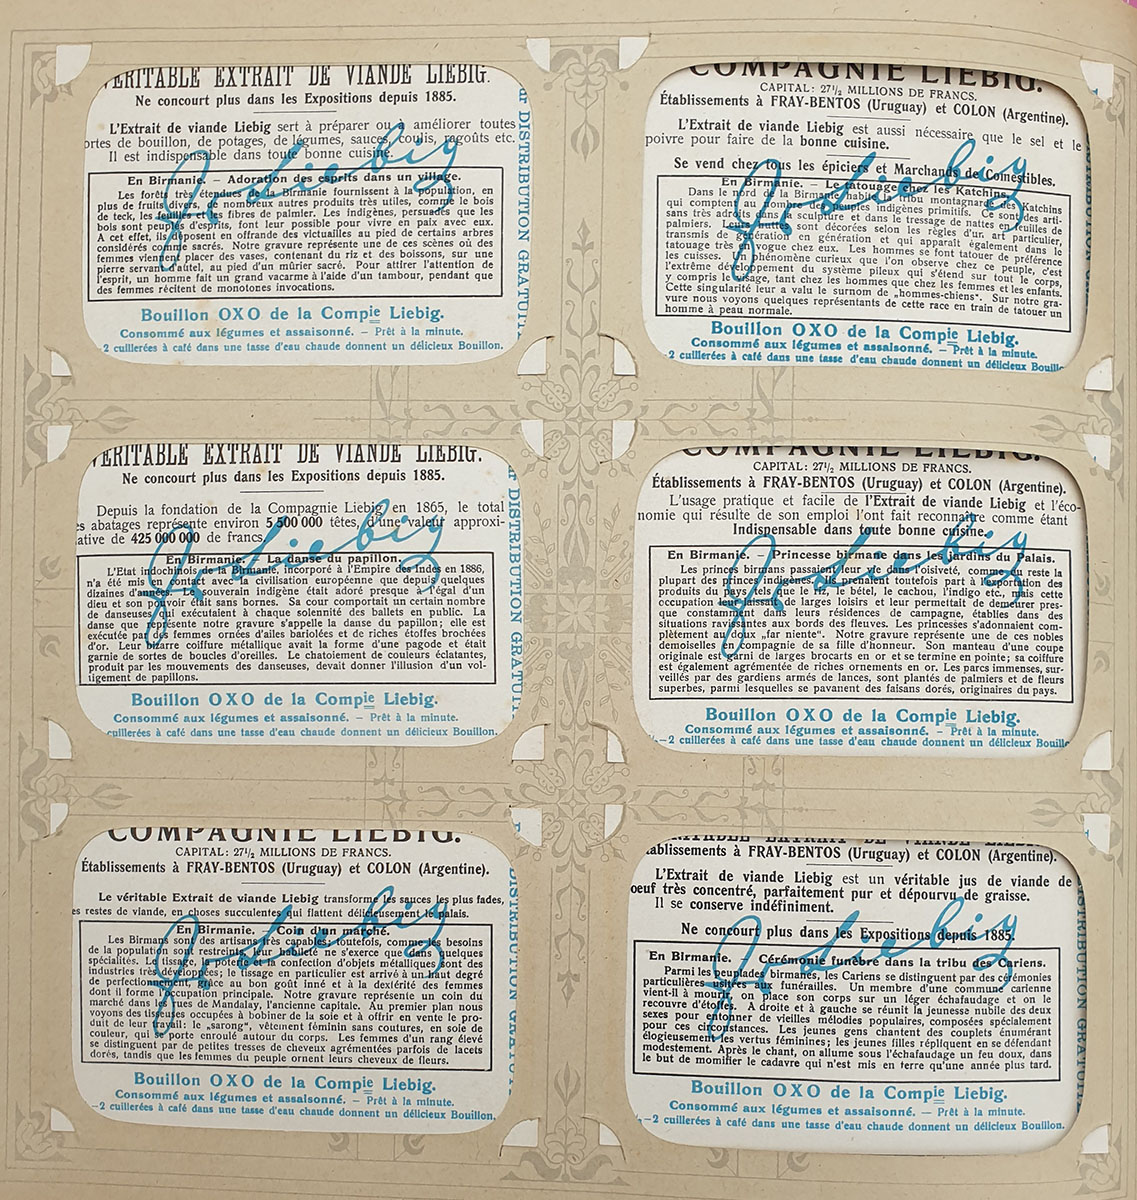 VÉRITABLE EXTRAIT DE VIANDE LIEBIG.
Ne concourt plus dans les Expositions depuis 1885.
L'Extrait de viande Liebig sert à préparer ou à améliorer toutes
ortes de bouillon, de potages, de légumes, sauces, coulis, ragoûts etc.
Il est indispensable dans toute bonne cuisine.
En Birmanie. – Adoration des esprits dans un village.
Les forêts très étendues de la Birmanie fournissent à la population, en
plus de fruits divers, de nombreux autres produits très utiles, comme le bois
de teck, les feuilles et les fibres de palmier. Les indigènes, persuadés que les
bois sont peuplés d'esprits, font leur possible pour vivre en paix avec eux.
A cet effet, ils déposent en offrande des victuailles au pied de certains arbres
considérés comme sacrés. Notre gravure représente une de ces scènes où des
femmes viennent placer des vases, contenant du riz et des boissons, sur une
pierre servant d'autel, au pied d'un mûrier sacré. Pour attirer l'attention de
l'esprit, un homme fait un grand vacarme à l'aide d'un tambour, pendant que
des femmes récitent de monotones invocations.
Bouillon OXO de la Compie Liebig.
Consommé aux légumes et assaisonné. – Prêt à la minute.
–2 cuillerées à café dans une tasse d'eau chaude donnent un délicieux Bouillon.
DISTRIBUTION GRATUIT
J v Liebig
COMPAGNIE LIEBIG.
CAPITAL: 27½ MILLIONS DE FRANCS.
Établissements à FRAY-BENTOS (Uruguay) et COLON (Argentine).
L'Extrait de viande Liebig est aussi nécessaire que le sel et le
poivre pour faire de la bonne cuisine.
Se vend chez tous les épiciers et Marchands de Comestibles.
En Birmanie. – Le tatouage chez les Katchins.
Dans le nord de la Birmanie habite la tribu montagnarde Katchins
qui comptent au nombre des peuples indigènes primitifs. Ce sont des arti-
sans très adroits dans la sculpture et dans le tressage de nattes en feuilles de
palmiers. Leurs huttes sont décorées selon les règles d'un art particulier,
transmis de génération en génération et qui apparaît également dans le
tatouage très en vogue chez eux. Les hommes se font tatouer de préférence
les cuisses. Un phénomène curieux que l'on observe chez ce peuple, c'est
l'extrême développement du système pileux qui s'étend sur tout le corps,
y compris le visage, tant chez les hommes que chez les femmes et les enfants.
Cette singularité leur a valu le surnom de „hommes-chiens“. Sur notre gra-
vure nous voyons quelques représentants de cette race en train de tatouer un
homme à peau normale.
Bouillon OXO de la Compie Liebig.
Consommé aux légumes et assaisonné. – Prêt à la minute.
–2 cuillerées à café dans une tasse d'eau chaude donnent un délicieux Bouillo
J v Liebig
VÉRITABLE EXTRAIT DE VIANDE LIEBIG.
Ne concourt plus dans les Expositions depuis 1885.
Depuis la fondation de la Compagnie Liebig en 1865, le total
es abatages représente environ 5 500 000 têtes, d'une valeur approxi-
ative de 425 000 000 de francs.
En Birmanie. – La danse du papillon.
L'Etat indochinois de la Birmanie, incorporé à l'Empire des Indes en 1886,
n'a été mis en contact avec la civilisation européenne que depuis quelques
dizaines d'années. Le souverain indigène était adoré presque à l'égal d'un
dieu et son pouvoir était sans bornes. Sa cour comportait un certain nombre
de danseuses qui exécutaient à chaque solennité des ballets en public. La
danse que représente notre gravure s'appelle la danse du papillon; elle est
exécutée par des femmes ornées d'ailes bariolées et de riches étoffes brochées
d'or. Leur bizarre coiffure métallique avait la forme d'une pagode et était
garnie de sortes de boucles d'oreilles. Le chatoiement de couleurs éclatantes,
produit par les mouvements des danseuses, devait donner l'illusion d'un vol-
tigement de papillons.
Bouillon OXO de la Compie Liebig.
Consommé aux légumes et assaisonné. – Prêt à la minute.
cuillerées à café dans une tasse d'eau chaude donnent un délicieux Bouillon.
DISTRIBUTION GRATUIT
J v Liebig
COMPAGNIE LIEBIG.
CAPITAL: 27½ MILLIONS DE FRANCS.
Établissements à FRAY-BENTOS (Uruguay) et COLON (Argentine).
L'usage pratique et facile de l'Extrait de viande Liebig et l'éco-
nomie qui résulte de son emploi l'ont fait reconnaître comme étant
Indispensable dans toute bonne cuisine.
En Birmanie. – Princesse birmane dans les Jardins du Palais.
Les princes birmans passaient leur vie dans l'oisiveté, comme du reste la
plupart des princes indigènes. Ils prennent toutefois part à l'exportation des
produits du pays tels que le riz, le bétel, le cachou, l'indigo etc., mais cette
occupation leur laissait de larges loisirs et leur permettait de demeurer pres-
que constamment dans leurs résidences de campagne, établies dans des
situations ravissantes aux bords des fleuves. Les princesses s'adonnaient com-
plètement au doux „far niente“. Notre gravure représente une de ces nobles
demoiselles en compagnie de sa fille d'honneur. Son manteau d'une coupe
originale est garni de larges brocarts en or et se termine en pointe; sa coiffure
est également agrémentée de riches ornements en or. Les parcs immenses, sur-
veillés par des gardiens armés de lances, sont plantés de palmiers et de fleurs
superbes, parmi lesquelles se pavanent des faisans dorés, originaires du pays.
Bouillon OXO de la Compie Liebig.
Consommé aux légumes et assaisonné. – Prêt à la minute.
–2 cuillerées à café dans une tasse d'eau chaude donnent un délicieux Bouillo
J v Liebig
COMPAGNIE LIEBIG.
CAPITAL: 27½ MILLIONS DE FRANCS.
Établissements à FRAY-BENTOS (Uruguay) et COLON (Argentine).
Le véritable Extrait de viande Liebig transforme les sauces les plus fades,
es restes de viande, en choses succulentes qui flattent délicieusement le palais.
En Birmanie. – Coin d'un marché.
Les Birmans sont des artisans très capables; toutefois, comme les besoins
de la population sont restreints, leur habileté ne s'exerce que dans quelques
spécialités. Le tissage, la poterie et la confection d'objets métalliques sont des
industries très développées; le tissage en particulier est arrivé à un haut degré
de perfectionnement, grâce au bon goût inné et à la dextérité des femmes
dont il forme l'occupation principale. Notre gravure représente un coin du
marché dans les rues de Mandalay, l'ancienne capitale. Au premier plan nous
voyons des tisseuses occupées à bobiner de la soie et à offrir en vente le pro-
duit de leur travail: le „sarong“, vêtement féminin sans coutures, en soie de
couleur, qui se porte enroulé autour du corps. Les femmes d'un rang élevé
se distinguent par de petites tresses de cheveux agrémentées parfois de lacets
dorés, tandis que les femmes du peuple ornent leurs cheveux de fleurs.
Bouillon OXO de la Compie Liebig.
Consommé aux légumes et assaisonné. – Prêt à la minute.
–2 cuillerées à café dans une tasse d'eau chaude donnent un délicieux Bouillon.
DISTRIBUTION GRATUIT
J v Liebig
VÉRITABLE EXTRAIT DE VIANDE LIEBIG
Établissements à FRAY-BENTOS (Uruguay) et COLON (Argentine).
L'Extrait de viande Liebig est un véritable jus de viande de
oeuf très concentré, parfaitement pur et dépourvu de graisse.
Il se conserve indéfiniment.
Ne concourt plus dans les Expositions depuis 1885.
En Birmanie. Cérémonie funèbre dans la tribu des Cariens.
Parmi les peuplades birmanes, les Cariens se distinguent par des cérémonies
particulières usitées aux funérailles. Un membre d'une commune carienne
vient-il à mourir, on place son corps sur un léger échafaudage et on le
recouvre d'étoffes. A droite et à gauche se réunit la jeunesse nubile des deux
sexes pour entonner de vieilles mélodies populaires, composées spécialement
pour ces circonstances. Les jeunes gens chantent des couplets énumérant
élogieusement les vertus féminines; les jeunes filles répliquent en se défendant
modestement. Après le chant, on allume sous l'échafaudage un feu doux, dans
le but de momifier le cadavre qui n'est mis en terre qu'une année plus tard.
Bouillon OXO de la Compie Liebig.
Consommé aux légumes et assaisonné. – Prêt à la minute.
–2 cuillerées à café dans une tasse d'eau chaude donnent un délicieux Bouillon.
DISTRIBUTION GRATUIT
J v Liebig